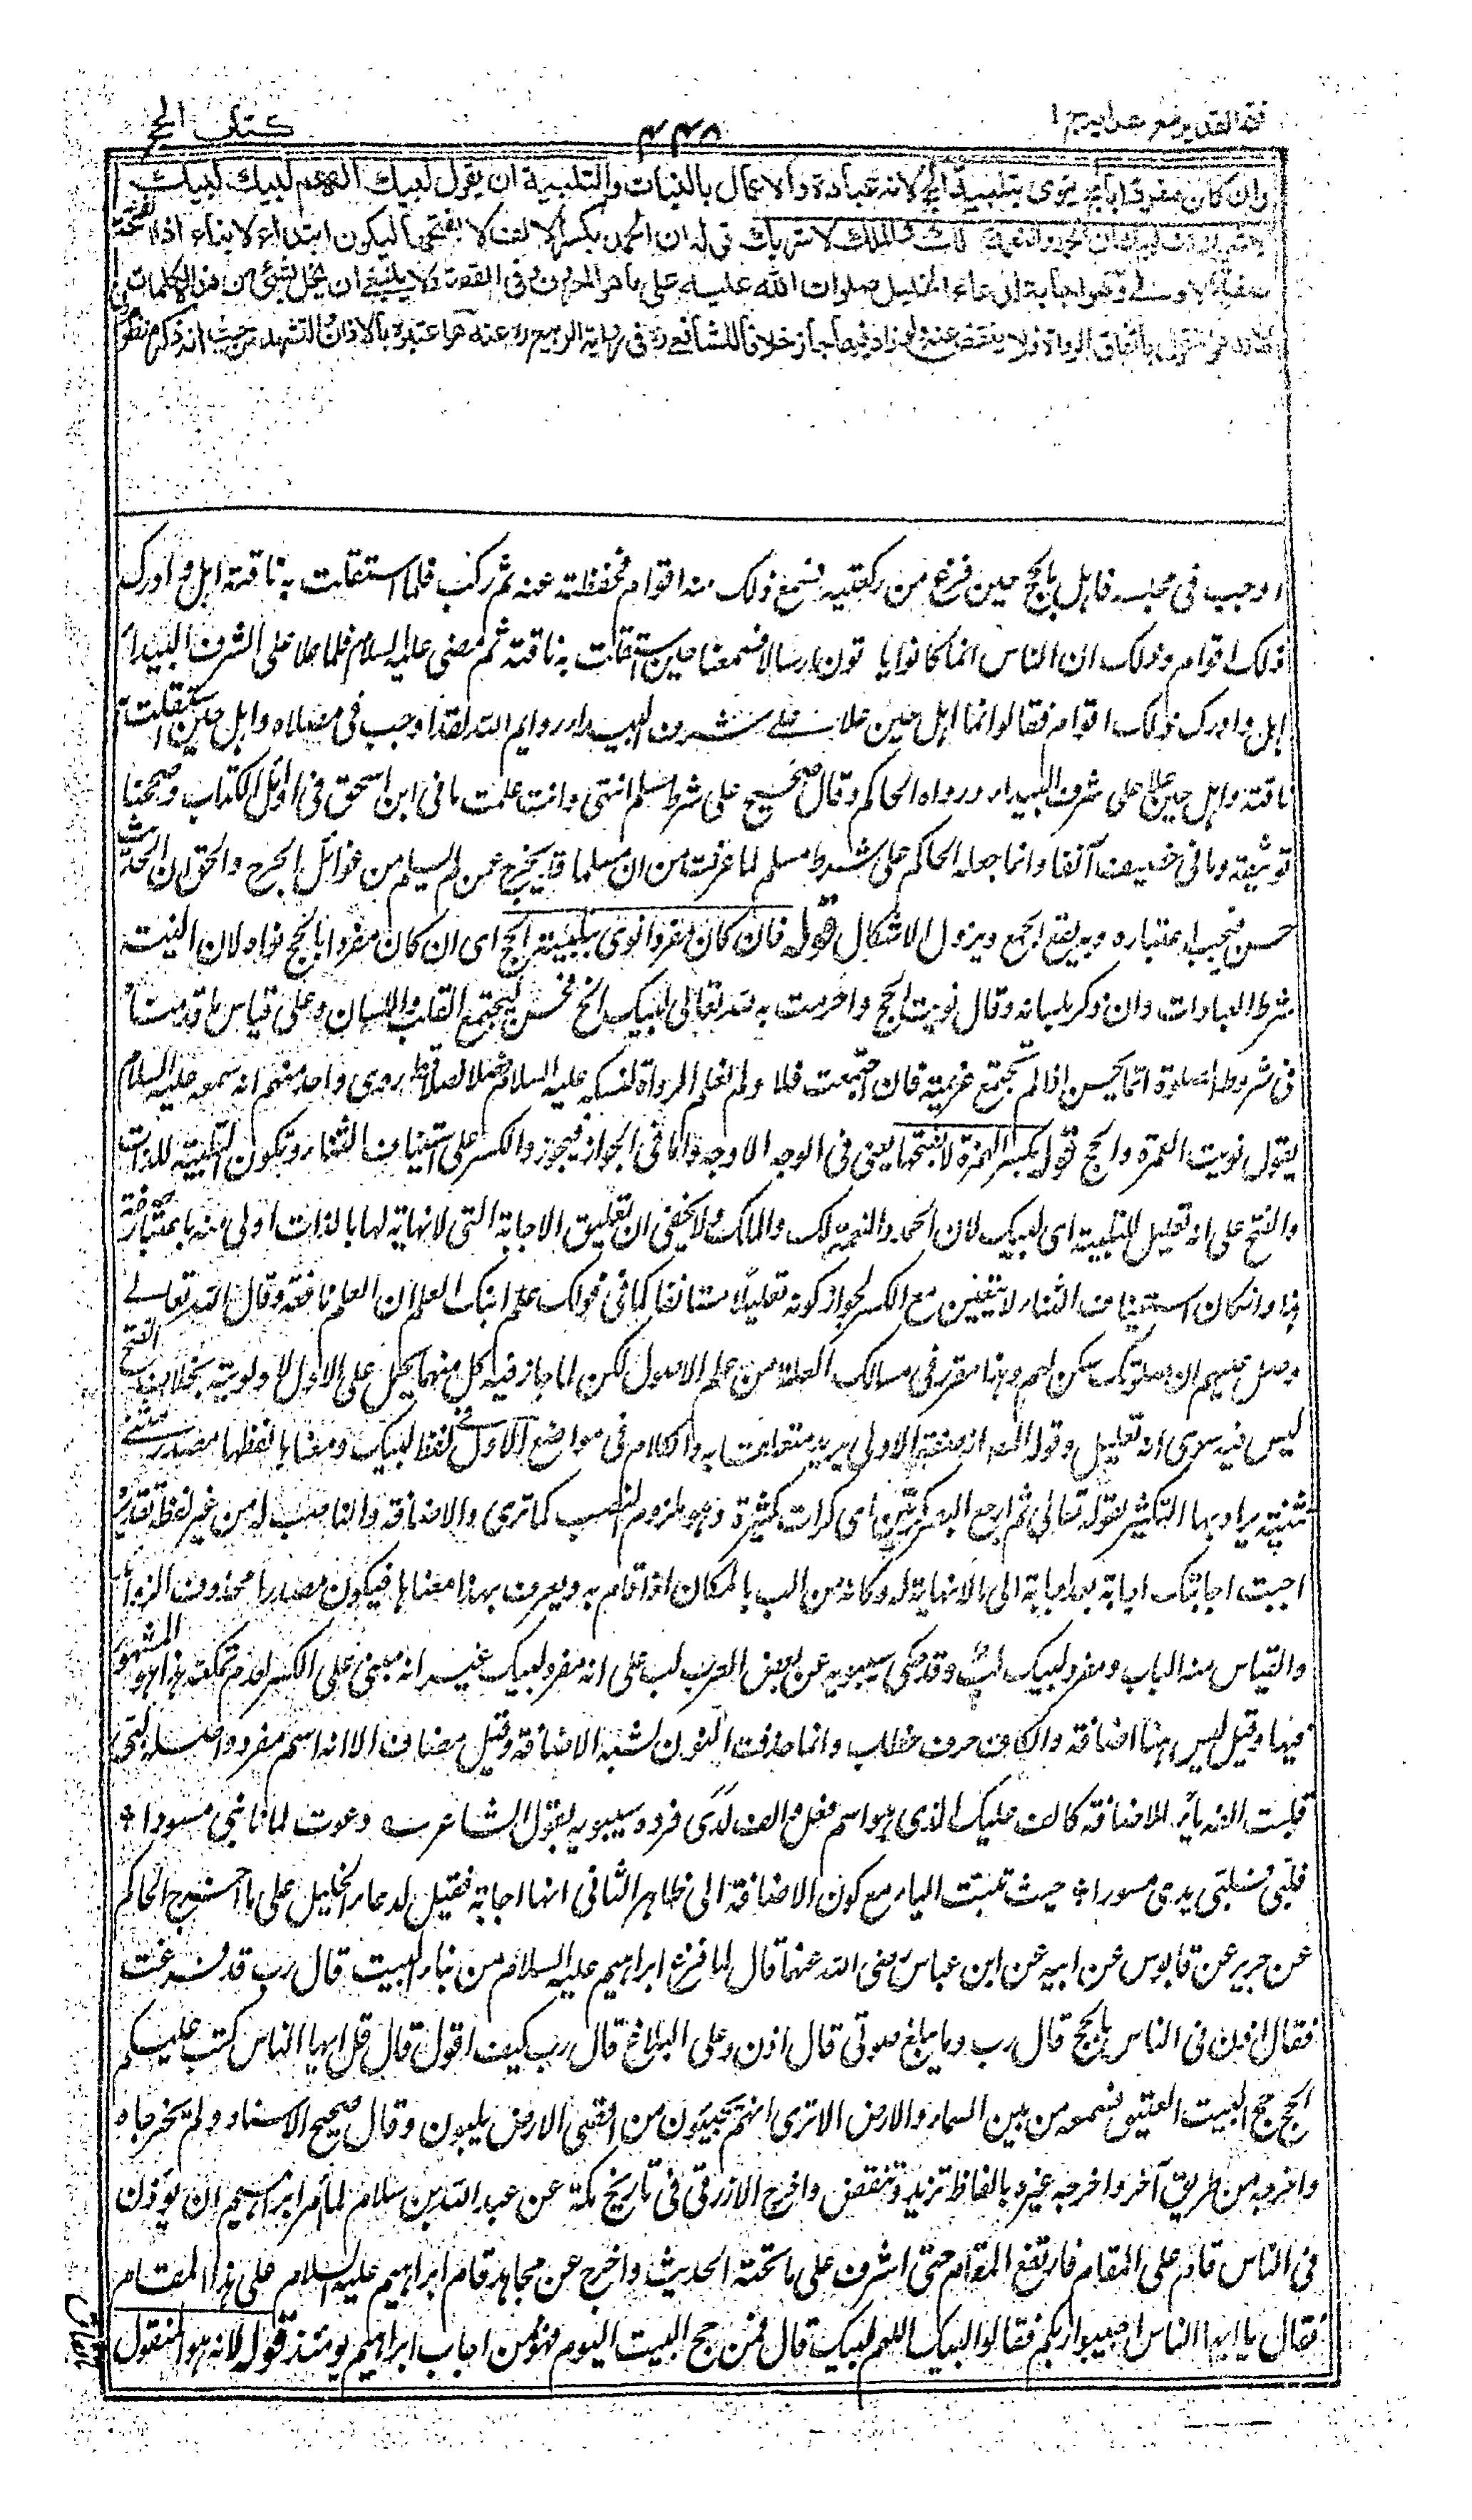 فتح القدير مع هدايه ج ١
٤٣٨
كتاب الحج
وان كان مفردا بالحج ينوى بتلبيته الحج لانه عبادة والاعمال بالنيات والتلبية ان يقول لبيك اللهم لبيك لبيك
لا شريك لك لبيك ان الحمد والنعمة لك والملك لا شريك لك قوله ان الحمد بكسر الالف لا بفتحها ليكون ابتداء لا بناء اذ الفتحة
صفة الاولى وهو اجابة لدعاء الخليل صلوات الله عليه على ما هو المعروف فى القصة ولا ينبغى ان يخل بشئ من هذه الكلمات
لانه هو المنقول باتفاق الرواة فلا ينقص عنه ولو زاد فيها جاز خلافا للشافعى ره فى رواية الربيع ره عنه هو اعتبره بالاذان والتشهد من حيث انه ذكر منظوم
اوجب فى مجلسه فاهل بالحج حين فرغ من ركعتيه فسمع ذلك منه اقوام فحفظته عنه ثم ركب فلما استقلت به ناقته اهل وادرك
ذلك اقوام وذلك ان الناس انما كانوا ياتون ارسالا فسمعناه حين استقلت به ناقته ثم مضى عليه السلام فلما علا على شرف البيداء
اهل وادرك ذلك اقوام فقالوا انما اهل حين علا على شرف البيداء وايم الله لقد اوجب فى مصلاه واهل حين استقلت به
ناقته واهل حين علا على شرف البيداء ورواه الحاكم وقال صحيح على شرط مسلم انتهى وانت علمت ما فى ابن اسحق فى اوائل الكتاب وصححنا
توثيقه وما فى خصيف آنفا وانما جعله الحاكم على شرط مسلم لما عرفت من ان مسلما قد يخرج عمن لم يسلم من غوائل الجرح والحق ان الحديث
حسن فيجب اعتباره وبه يقع الجمع ويزول الاشكال قوله فان كان مفردا نوى بتلبيته الحج اى ان كان مفردا بالحج نواه لان النية
شرط العبادات وان ذكر بلسانه وقال نويت الحج واحرمت به لله تعالى لبيك الخ فحسن ليجتمع القلب واللسان وعلى قياس ما قدمناه
فى شروط الصلوة انما يحسن اذا لم تجتمع عزيمته فان اجتمعت فلا ولم نعلم الرواة لنسكه عليه السلام فصلا فصلا قط روى واحد منهم انه سمعه عليه السلام
يقول نويت العمرة والحج قوله بكسر الهمزة لا بفتحها يعنى فى الوجه الاوجه واما فى الجواز فيجوز والكسر على استيناف الثناء وتكون التلبية للذات
والفتح على انه تعليل للتلبية اى لبيك لان الحمد والنعمة لك والملك ولا يخفى ان تعليق الاجابة التى لا نهاية لها بالذات اولى منه باعتبار صفة
هذا وان كان استيناف الثناء لا يتعين مع الكسر لجواز كونه تعليلا مستانفا كما فى قولك علم ابنك العلم ان العلم نافعه وقال الله تعالى
وصل عليهم ان صلوتك سكن لهم وهذا مقرر فى مسالك العلة من علم الاصول لكن لما جاز فيه كل منهما يحمل على الاول لاولويته بخلاف الفتح
ليس فيه سوى انه تعليل وقول المصـ انه صفة الاولى يريد متعلقا به والكلام فى مواضع الاول لفظ لبيك ومعناها لفظها مصدر مثنى
تثنية يراد بها التكثير لقوله تعالى ثم ارجع البصر كرتين اى كرات كثيرة وهو ملزوم النصب كما ترى والاضافة والناصب له من غير لفظه تقديره
اجبت اجابتك اجابة بعد اجابة الى ما لا نهاية له وكانه من الب بالمكان اذا اقام به ويعرف بهذا معناها فيكون مصدرا محذوف الزوائد
والقياس منه الباب ومفرد لبيك لب وقد حكى سيبويه عن بعض العرب لب على انه مفرد لبيك غير انه مبنى على الكسر لعدم تمكنه هذا هو المشهور
فيها وقيل ليس هنا اضافة والكاف حرف خطاب وانما حذفت النون لشبه الاضافة وقيل مضاف الا انه اسم مفرد واصله لبى
قلبت الفه ياء للاضافة كالف عليك الذى هو اسم فعل والف لدى فرده سيبويه بقول الشاعر دعوت لما نابنى مسورا
فلبى فلبى يدى مسور حيث ثبتت الياء مع كون الاضافة الى ظاهر الثانى انها اجابة فقيل لدعاء الخليل على ما اخرج الحاكم
عن جرير عن قابوس عن ابيه عن ابن عباس رضى الله عنهما قال لما فرغ ابراهيم عليه السلام من بناء البيت قال رب قد فرغت
فقال اذن فى الناس بالحج قال رب وما يبلغ صوتى قال اذن وعلى البلاغ قال رب كيف اقول قال قل ايها الناس كتب عليكم
الحج حج البيت العتيق فسمعه من بين السماء والارض الا ترى انهم يجيئون من اقصى الارض يلبون وقال صحيح الاسناد ولم يخرجاه
واخرجه من طريق آخر واخرجه غيره بالفاظ تزيد وتنقص واخرج الازرقى فى تاريخ مكة عن عبد الله بن سلام لما امر ابراهيم ان يوذن
فى الناس قام على المقام فارتفع المقام حتى اشرف على ما تحته الحديث واخرج عن مجاهد قام ابراهيم عليه السلام على هذا المقام
فقال يا ايها الناس اجيبوا ربكم فقالوا لبيك اللهم لبيك قال فمن حج البيت اليوم فهو ممن اجاب ابراهيم يومئذ قوله لانه هو المنقول